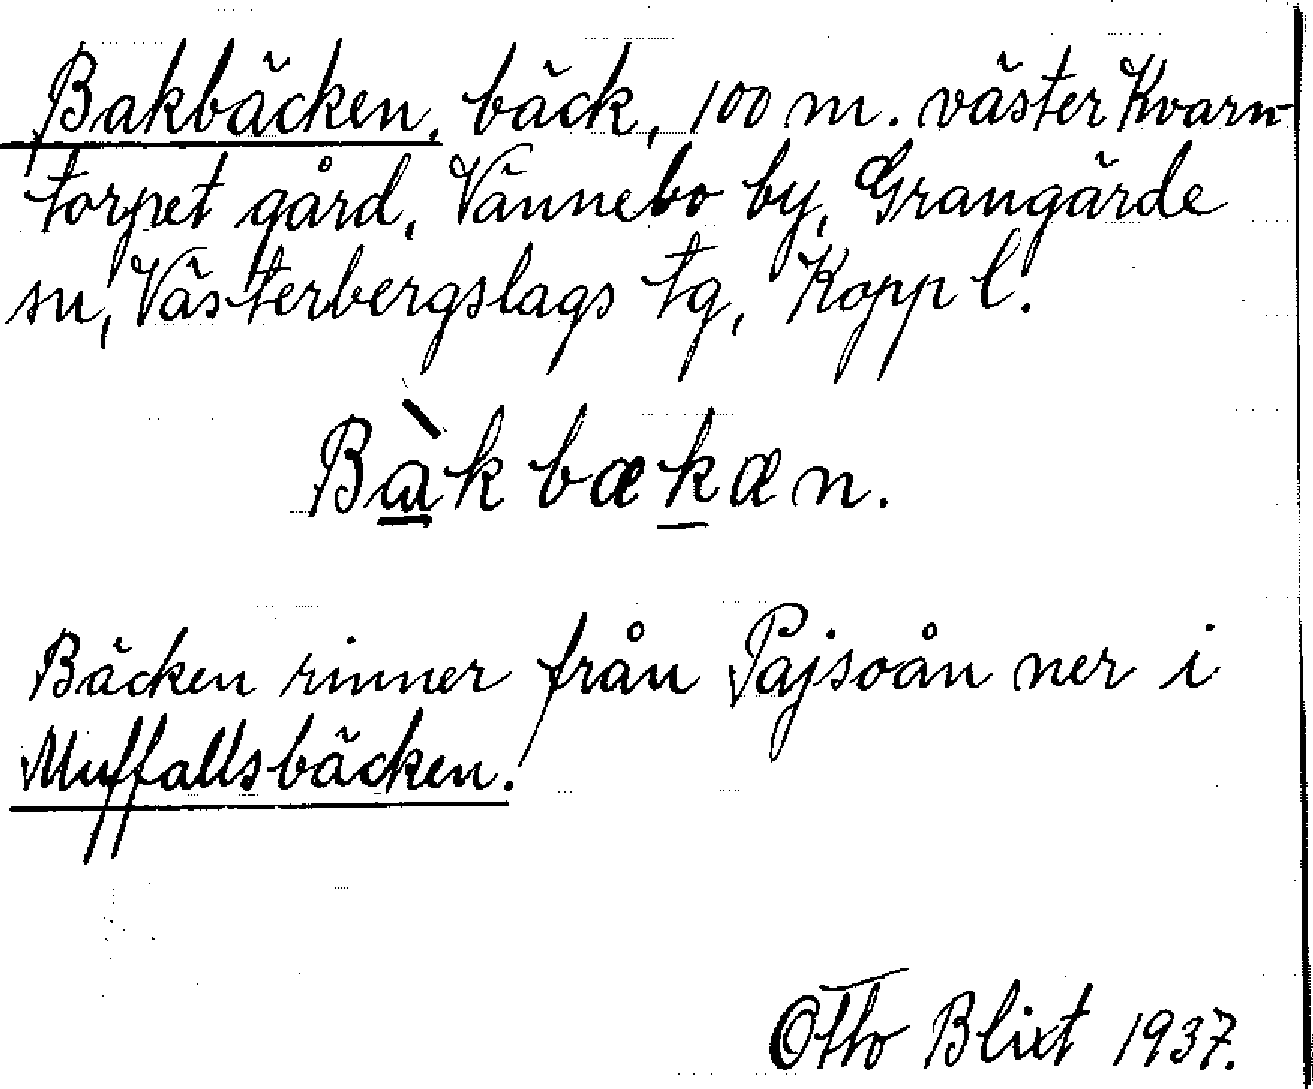 Bakbäcken, bäck, 100 m. väster Kvarn-
torpet gård, Vännebo by, Grangärde
sn, Västerbergslags tg, Kopp l.
Bàkbækæn.
Bäcken rinner från Pajsoån ner i
Muffallsbäcken.
Otto Blixt 1937.